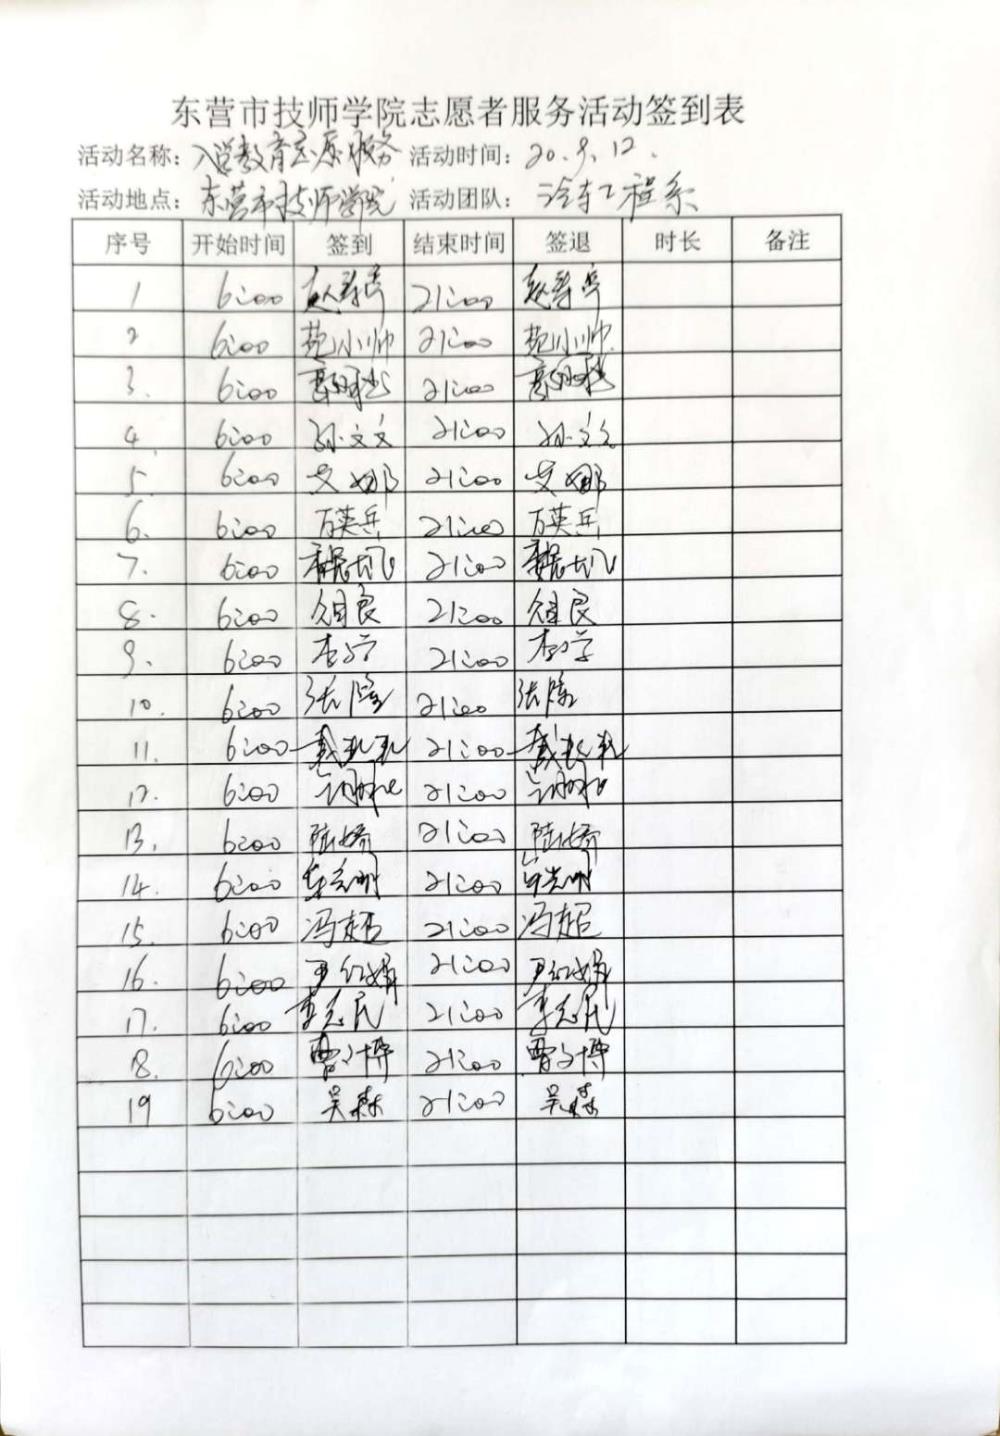 东营市技师学院志愿者服务活动签到表
活动名称：入学教育志愿服务 活动时间：20.9.12.
活动地点：东营市技师学院 活动团队：汽车工程系
序号 开始时间 签到 结束时间 签退 时长 备注
1 6:00 21:00
2 6:00 范小帅 21:00 范小帅
3. 6:00 21:00
4 6:00 孙文文 21:00 孙文文
5. 6:00 娜 21:00 娜
6. 6:00 万英兵 21:00 万英兵
7. 6:00 21:00
8. 6:00 良 21:00 良
9. 6:00 21:00
10. 6:00 张隆 21:00 张隆
11. 6:00 21:00
12. 6:00 21:00
13. 6:00 陆娇 21:00 陆娇
14. 6:00 明 21:00 明
15. 6:00 冯超 21:00 冯超
16. 6:00 尹红娟 21:00 尹红娟
17. 6:00 李志民 21:00 李志民
18. 6:00 曹博 21:00 曹博
19 6:00 吴森 21:00 吴森